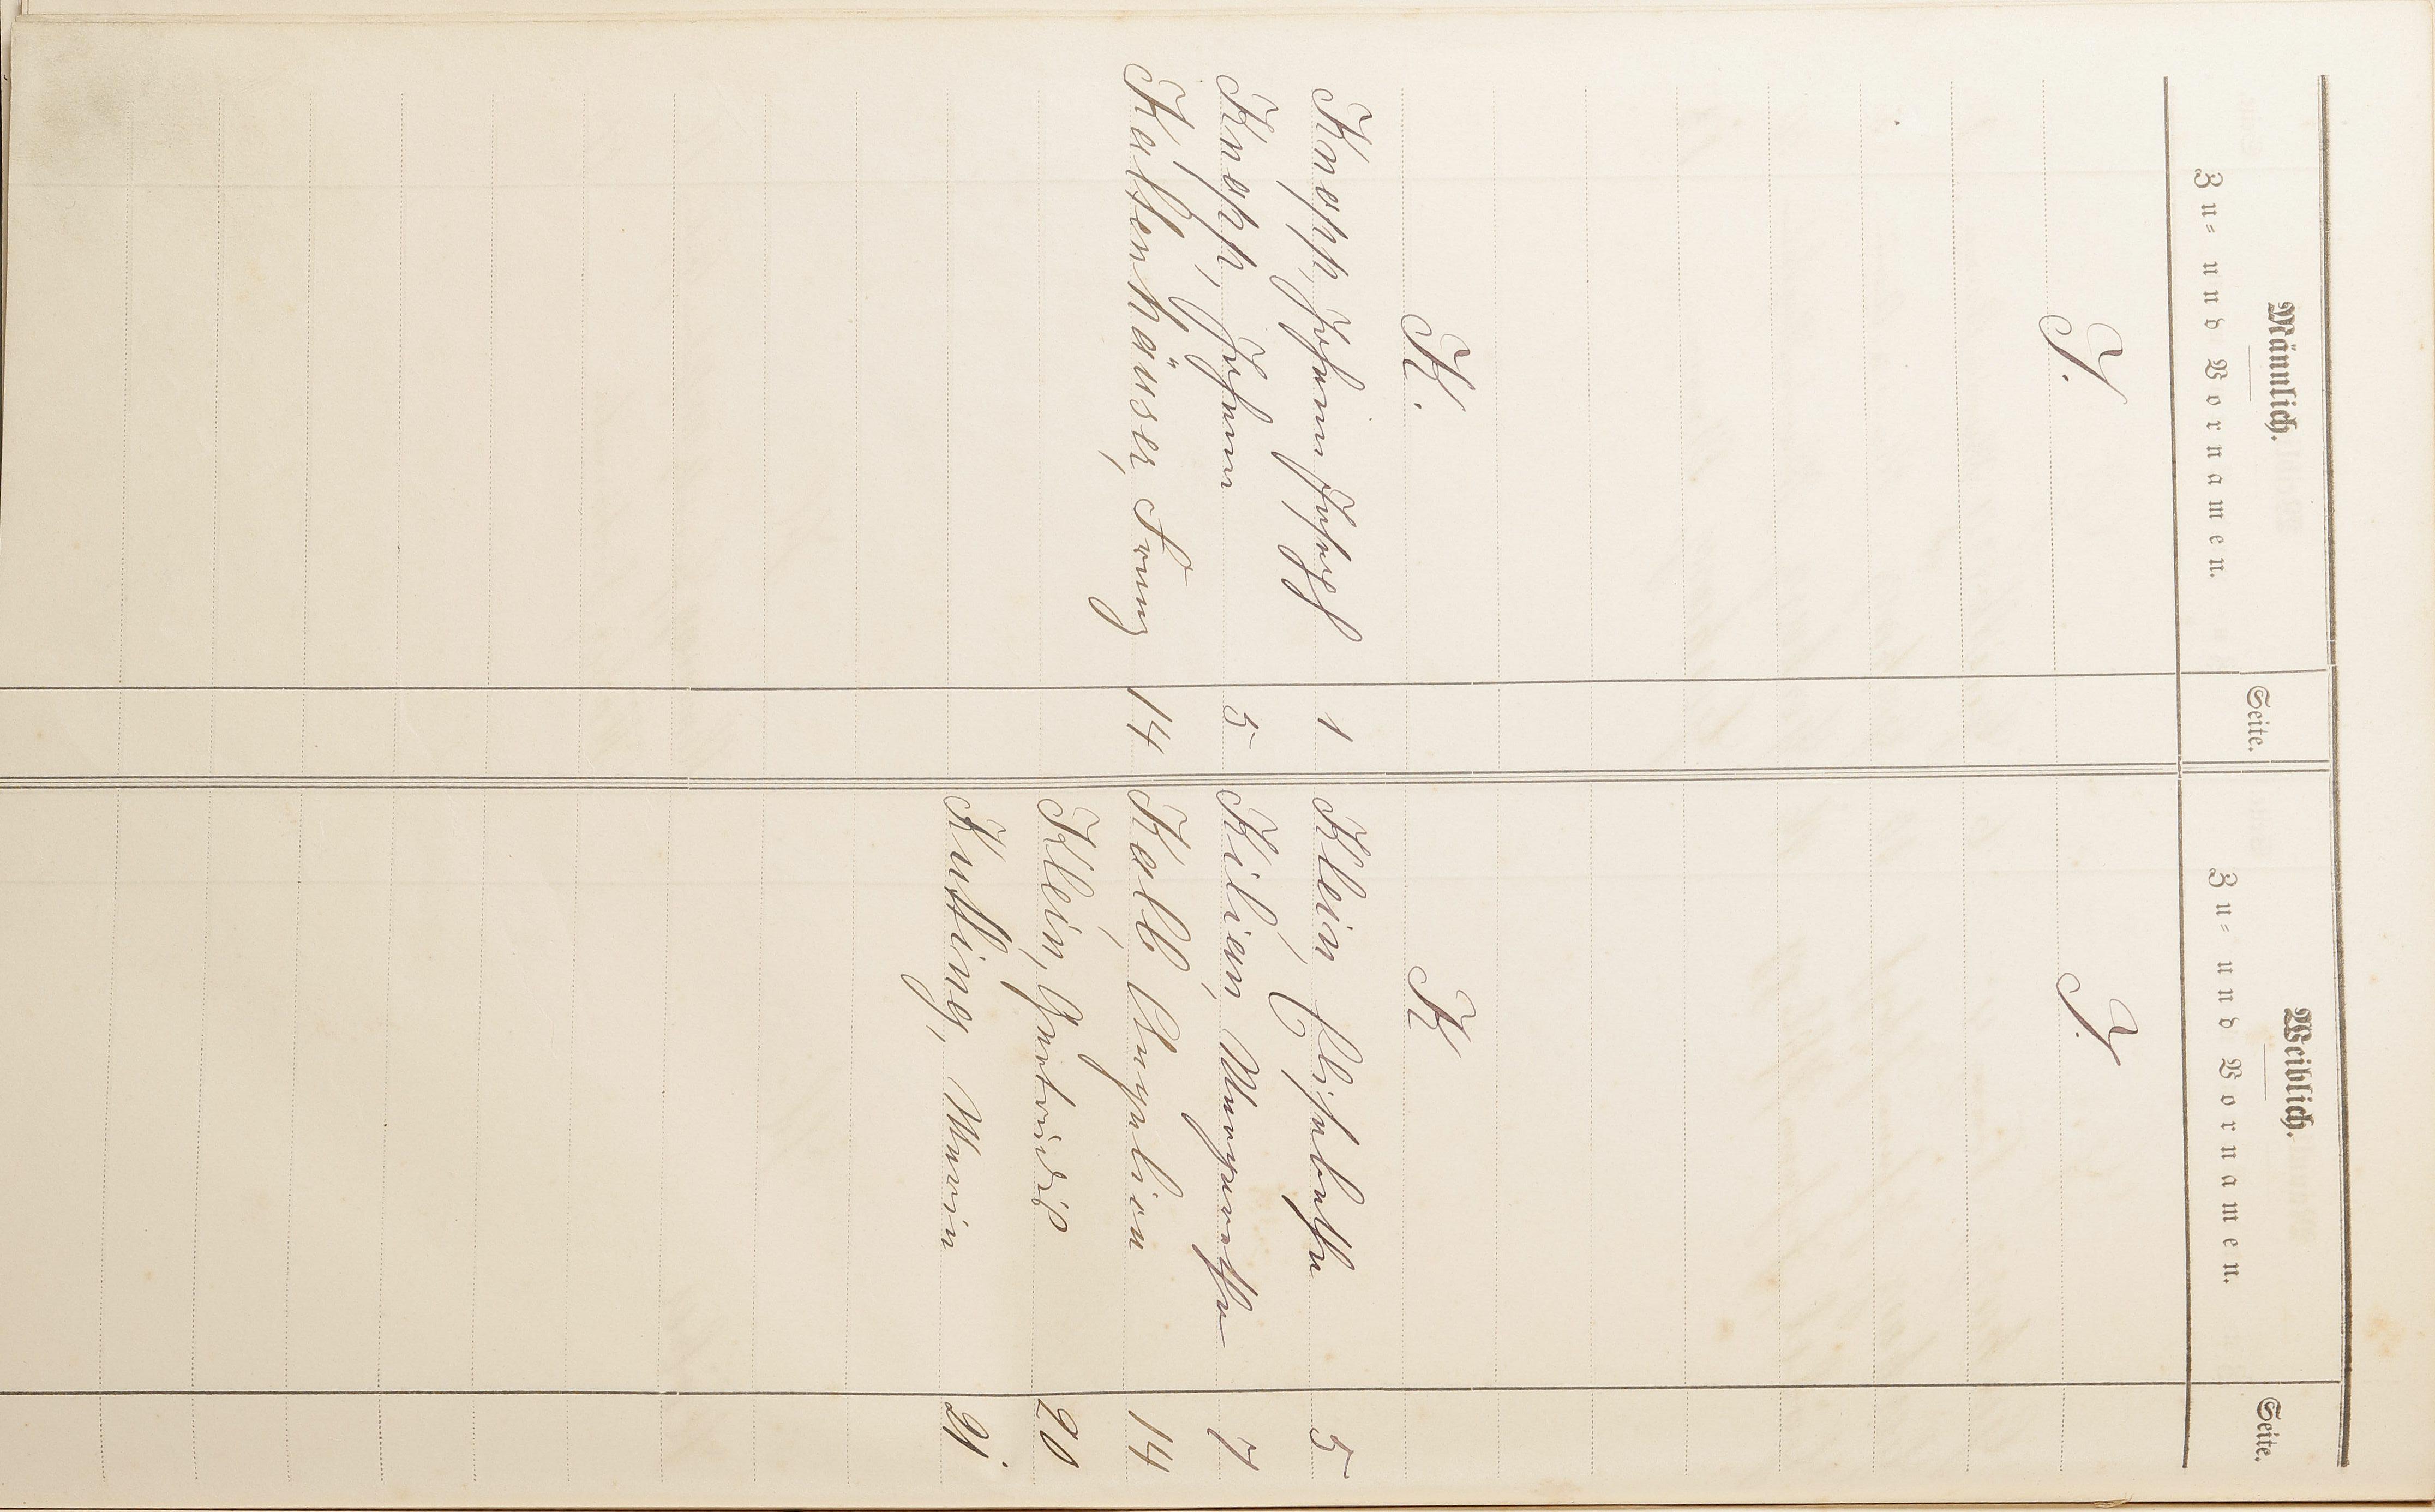 Männlich.
Zu- und Vornamen.
Seite.
J.
K.
Knopp, Johann Joseph 1
Knopp, Johann 5
Kaltenhäuser, Franz 14
Weiblich.
Zu- und Vornamen.
Seite.
J.
K
Klein, Elisabetha 5
Kilian, Margaretha 7
Kalb Angelica 14
Klein, Gertrudis 20
Maria 21